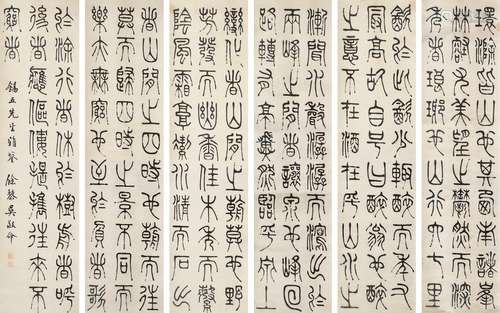 環滁皆山也其西南諸峯
林壑尤美望之蔚然而深
秀者瑯琊也山行六七里
飲於此飲少輒醉而年又
冣高故自号曰醉翁也醉翁
之意不在酒在乎山水之
漸聞水聲潺潺而瀉出於
兩峯之間者釀泉也峯回
路轉有亭翼然臨於泉上
變化者山間之朝暮也野
芳發而幽香佳木秀而繁
陰風霜高潔水落而石出
者山間之四時也朝而往
暮而歸四時之景不同而
樂亦無窮也至於負者歌
於滁行者休於樹前者呼
後者應傴僂提攜往來不
窮者
錫五先生雅鑒